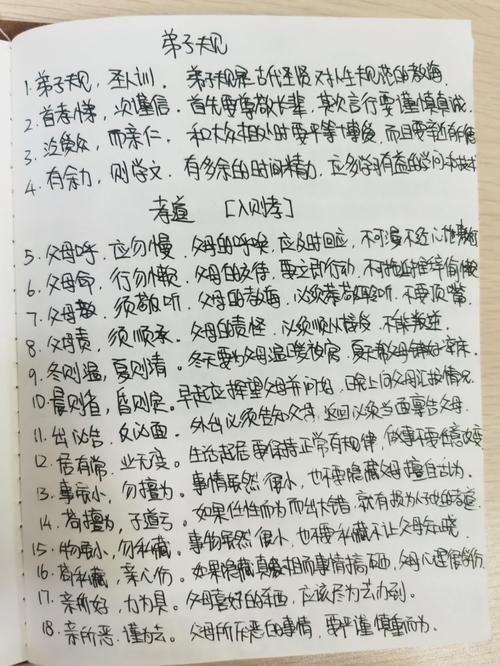 弟子规
1.弟子规，圣人训．弟子规是古代圣贤对人生规范的教诲．
2.首孝悌，次谨信．首先要尊敬长辈，其次言行要谨慎真诚．
3.泛爱众，而亲仁．和大众相处时要平等博爱，而且要亲近
4.有余力，则学文．有多余的时间精力，应多学习有益的学问
孝道 [入则孝]
5.父母呼，应勿慢．父母的呼唤，应及时回应，不可漫不经心
6.父母命，行勿懒．父母的交待，要立即行动，不拖延推辞偷懒
7.父母教，须敬听．父母的教诲，必须恭敬聆听，不要顶嘴．
8.父母责，须顺承．父母的责怪，必须顺从接受，不能叛逆．
9.冬则温，夏则清．冬天要为父母温暖被窝，夏天帮父母铺好凉床．
10.晨则省，昏则定．早起应探望父母并问好，晚上向父母汇报情况．
11.出必告，反必面．外出必须告知父母，返回必须当面禀告父母．
12.居有常，业无变．生活起居要保持正常有规律，做事不要任意改变
13.事虽小，勿擅为．事情虽然很小，也不要隐藏父母擅自出为．
14.苟擅为，子道亏．如果任性而为而出大错，就有损为人子女的孝道．
15.物虽小，勿私藏．事物虽然很小，也不要私藏不让父母知晓．
16.苟私藏，亲心伤．如果隐藏真相而事情搞砸，父母心理很受伤
17.亲所好，力为具．父母喜好的东西，应该尽力去办到．
18.亲所恶，谨为去．父母所厌恶的事情，要严谨慎重而为．